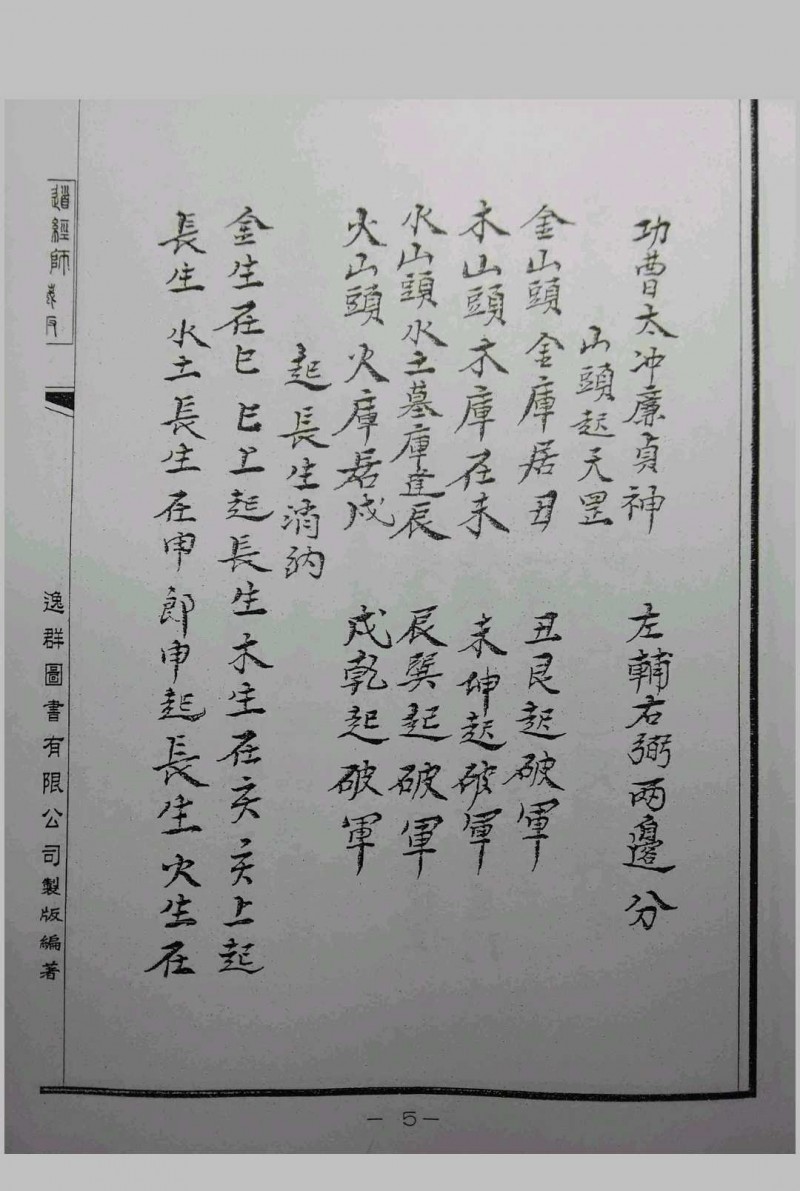 功曹太冲廉貞神　左輔右弼两邊分
山頭起天罡
金山頭金庫居丑　丑艮起破軍
木山頭木庫在未　未坤起破軍
水山頭水土墓庫逢辰　辰巽起破軍
火山頭火庫居戌　戌乾起破軍
起長生消纳
金生在巳巳上起長生木生在亥亥上起
長生水土長生在申郎申起長生火生在
道經師
逸群圖書有限公司製版編著
— 5 —